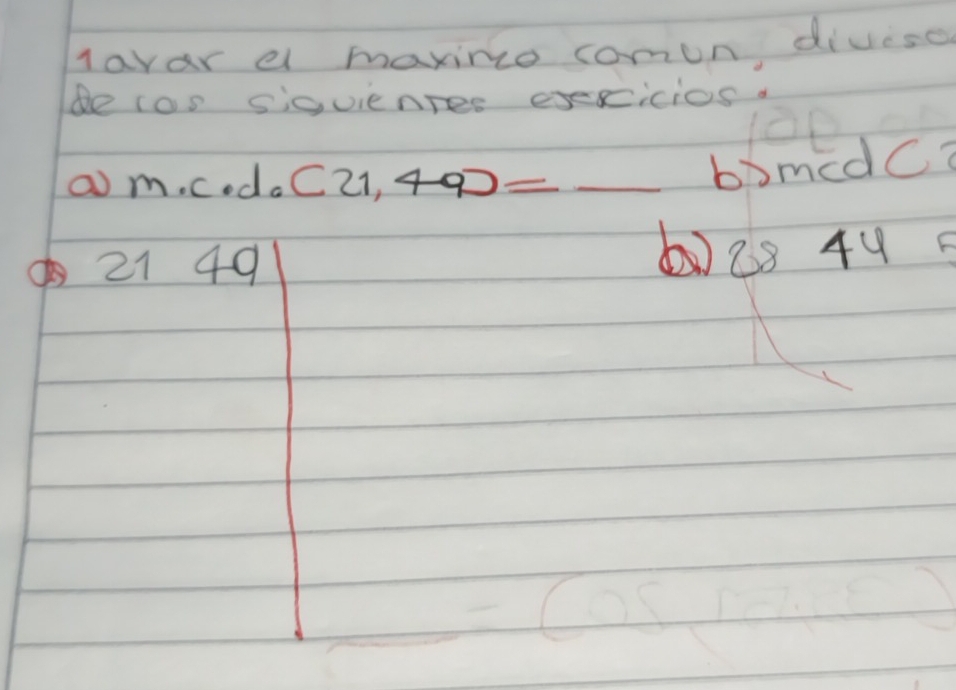 el maximo comun diviso
de los siguientes exercicios.
a) m.c.d. (21, 49) = ___ b) mcd (2
a) 21 49 b) 28 44 5